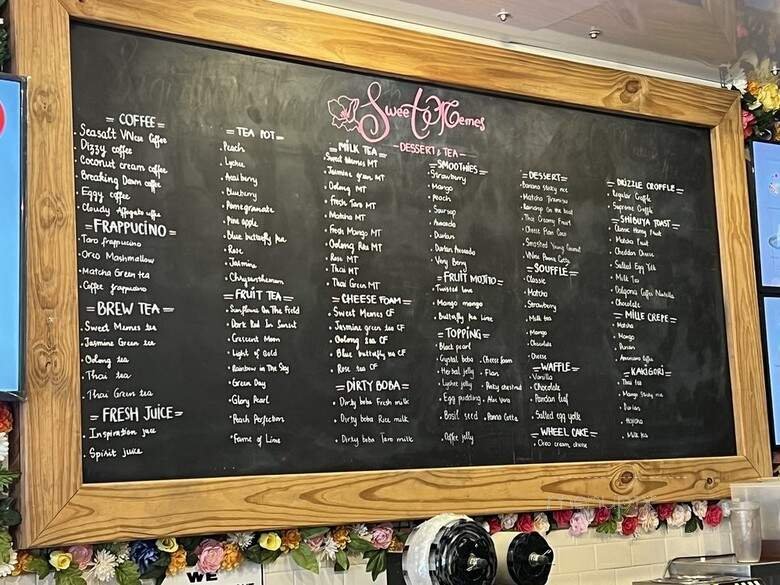 Sweet Memes
DESSERT & TEA
= COFFEE =
Seasalt VNese Coffee
Dizzy coffee
Coconut cream coffee
Breaking Dawn coffee
Eggy coffee
Cloudy Affogato coffee
= FRAPPUCINO =
Taro frappucino
Oreo Marshmallow
Matcha Green tea
Coffee frappucino
= BREW TEA =
Sweet Memes tea
Jasmine Green tea
Oolong tea
Thai tea
Thai Green tea
= FRESH JUICE =
Inspiration juice
Spirit juice
= TEA POT =
Peach
Lychee
Acai berry
Blueberry
Pomegranate
Pine apple
Blue butterfly Pea
Rose
Jasmine
Chrysanthemum
= FRUIT TEA =
Sunflowers On The Field
Dark Red In Sunset
Crescent Moon
Light of Gold
Rainbow in The Sky
Green Day
Glory Pearl
Peach Perfection
Fame of Lime
= MILK TEA =
Sweet Memes MT
Jasmine green MT
Oolong MT
Fresh Taro MT
Matcha MT
Fresh Mango MT
Oolong Rose MT
Rose MT
Thai MT
Thai Green MT
= CHEESE FOAM =
Sweet Memes CF
Jasmine green tea CF
Oolong tea CF
Blue butterfly tea CF
Rose tea CF
= DIRTY BOBA =
Dirty boba Fresh milk
Dirty boba Rice milk
Dirty boba Taro milk
= SMOOTHIES =
Strawberry
Mango
Peach
Soursop
Avocado
Durian
Durian Avocado
Very Berry
= FRUIT MOJITO =
Twisted love
Mango mango
Butterfly Pea Lime
= TOPPING =
Black pearl
Crystal boba
Cheese foam
Herbal jelly
Flan
Lychee jelly
Pocky chestnut
Egg pudding
Aloe Vera
Basil seed
Panna Cotta
Coffee jelly
= DESSERT =
Banana sticky rice
Matcha Tiramisu
Durian On the boat
Thai Creamy Fruit
Cheese Flan Cake
Smashed Young Coconut
VNese Panna Cotta
= SOUFFLE =
Classic
Matcha
Strawberry
Milk tea
Mango
Chocolate
Cheese
= WAFFLE =
Vanilla
Chocolate
Pandan leaf
Salted egg yolk
= WHEEL CAKE =
Oreo cream cheese
= DRIZZLE CROFFLE =
Regular Croffle
Supreme Croffle
= SHIBUYA TOAST =
Classic Honey Fruit
Matcha Fruit
Cheddar Cheese
Salted Egg Yolk
Milk Tea
Dalgona Coffee Nutella
Chocolate
= MILLE CREPE =
Matcha
Mango
Durian
= KAKIGORI =
Thai tea
Mango Sticky rice
Durian
Hojicha
Milk tea
WE